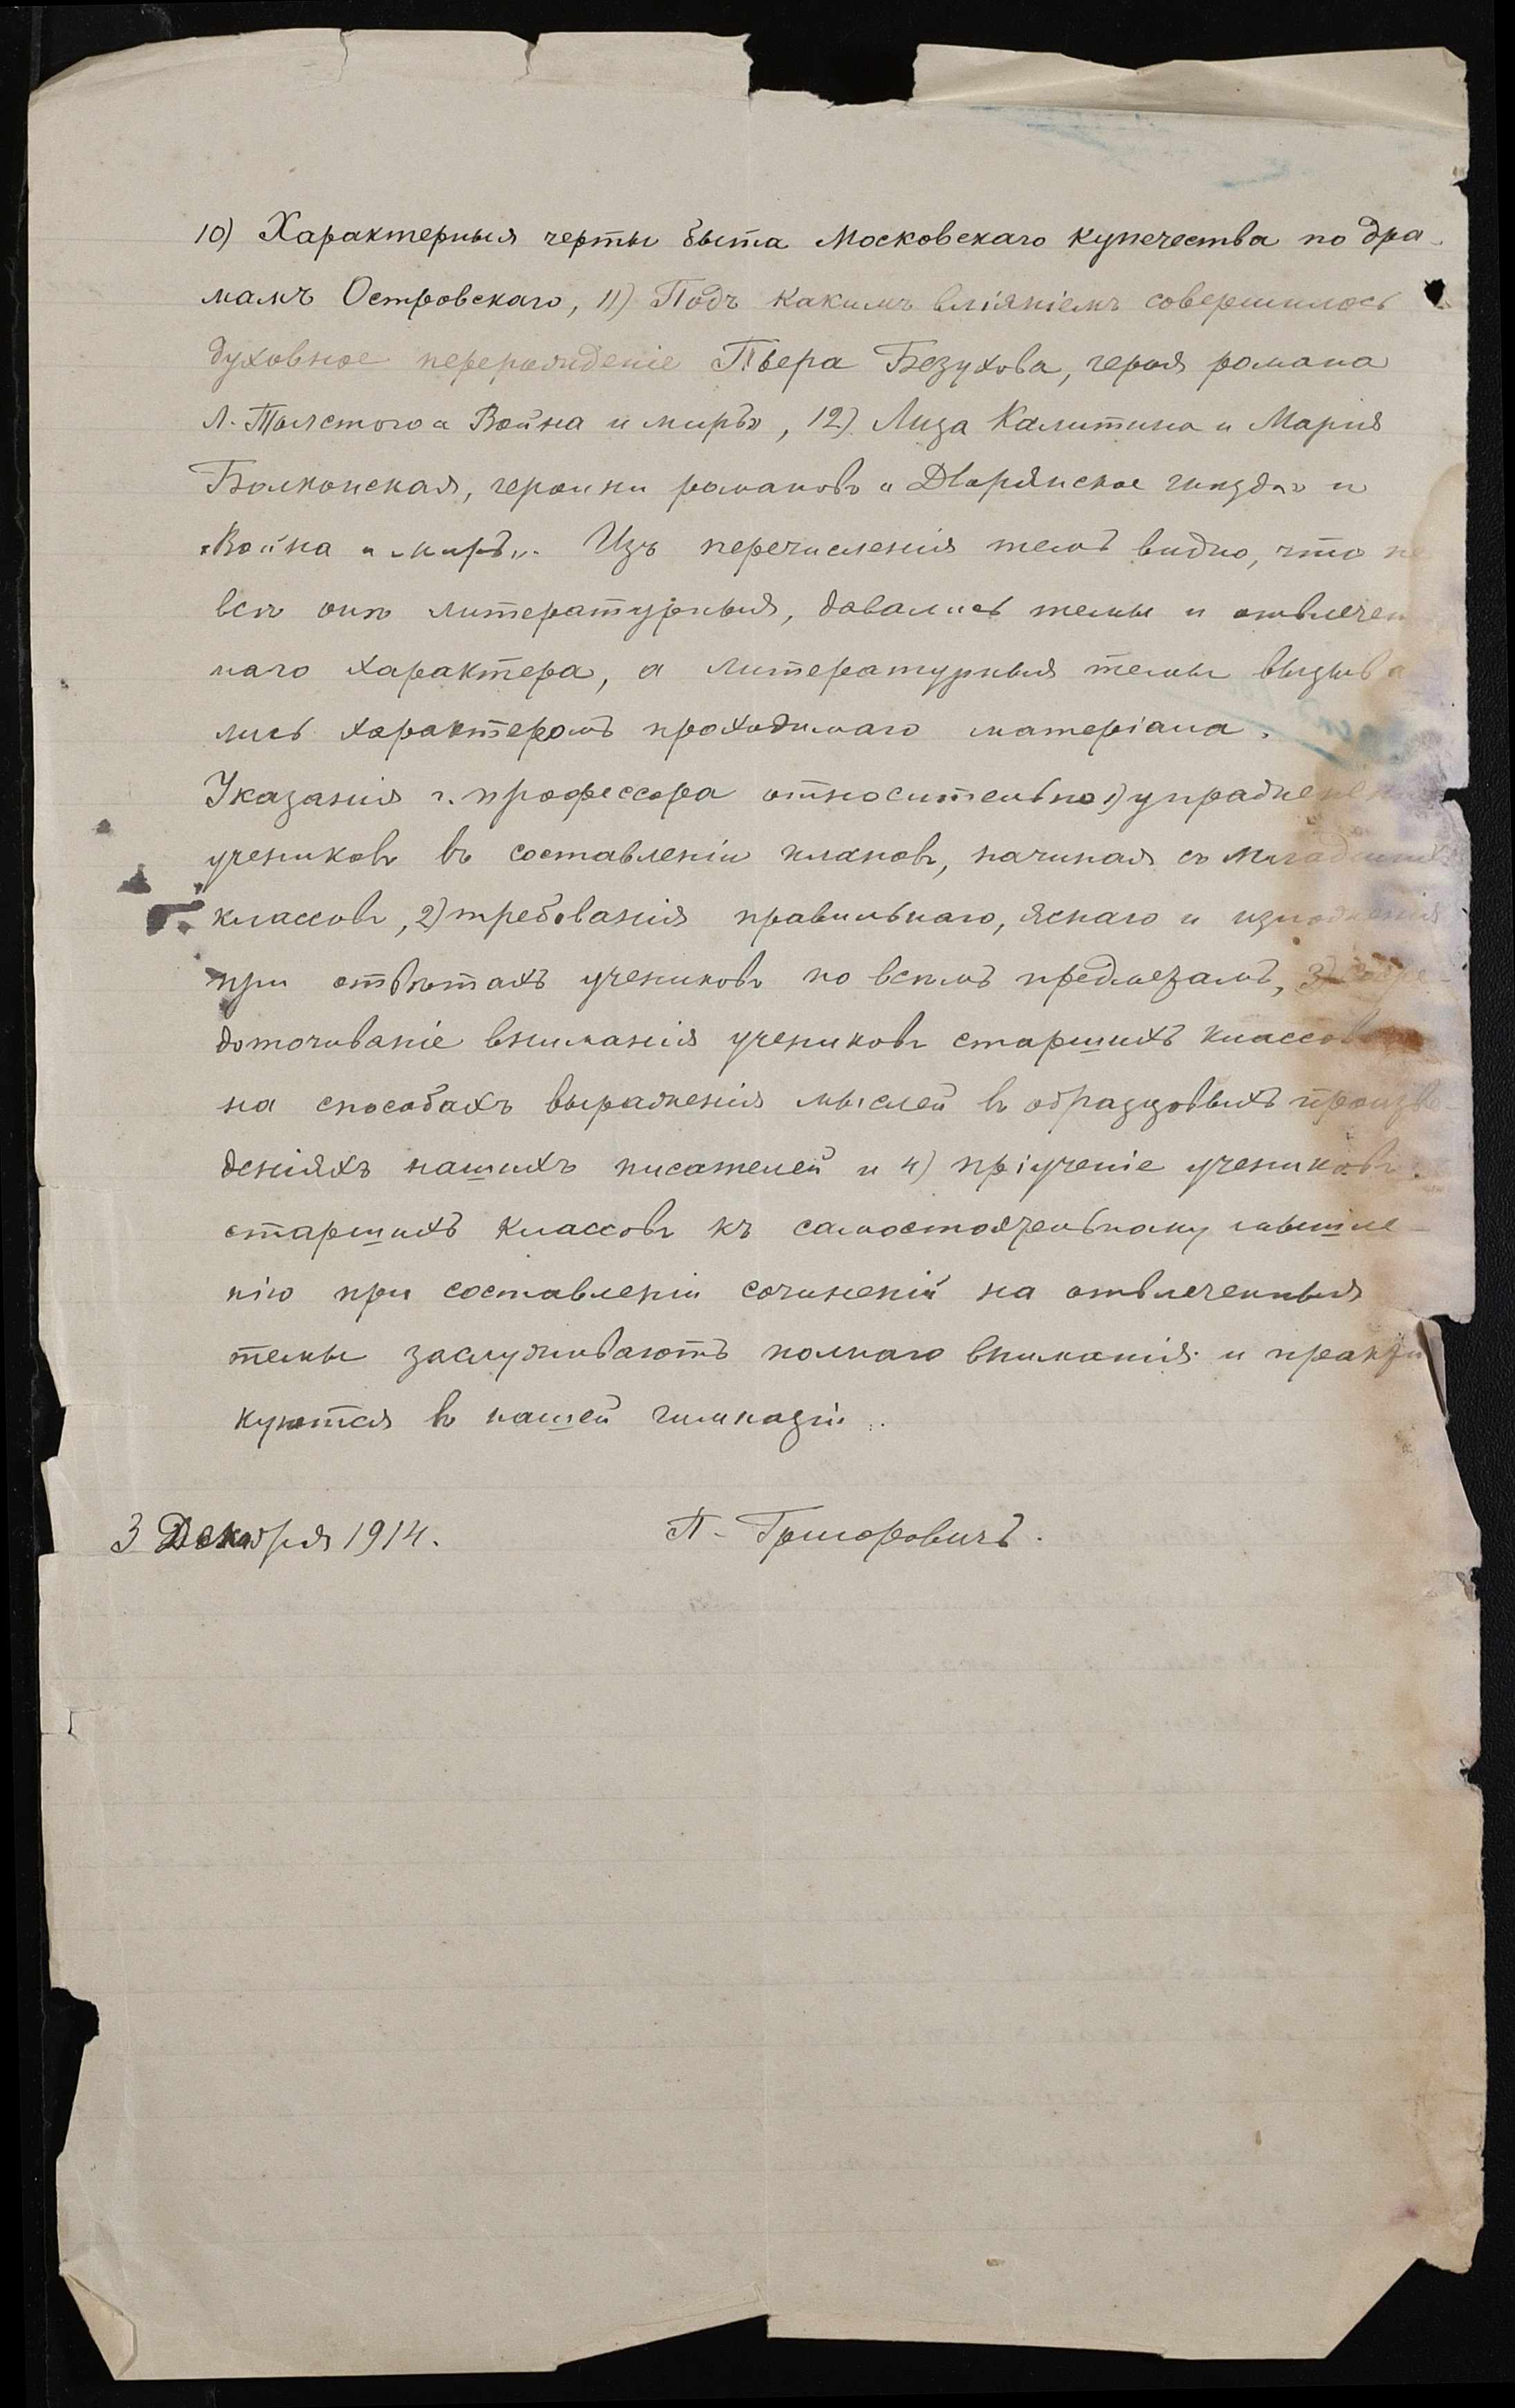 10) Характерныя черты быта Московскаго купечества по дра-
мамъ Островскаго, 11) Подъ какимъ вліяніемъ совершилось
духовное перерожденіе Пьера Безухова, героя романа
Л. Толстого «Война и миръ», 12) Лиза Калитина и Марія
Болконская, героини романовъ «Дворянское гнѣздо» и
«Война и миръ». Изъ перечисленія темъ видно, что не
всѣ онѣ литературныя, давались темы и отвлечен
наго характера, а литературныя темы вызыва
лись характеромъ проходимаго матеріала.
Указанія г. профессора относительно 1) упражненія
учениковъ въ составленіи плановъ, начиная съ младшихъ
классовъ, 2) требованія правильнаго, яснаго и изложенія
при отвѣтахъ учениковъ по всѣмъ предметамъ, 3) сосре-
доточиваніе вниманія учениковъ старшихъ классовъ
на способахъ выраженія мыслей въ образцовыхъ произве-
деніяхъ нашихъ писателей и 4) пріученіе учениковъ
старшихъ классовъ къ самостоятельному мышле-
нію при составленіи сочиненій на отвлеченныя
темы заслуживаютъ полнаго вниманія и практи
куются въ нашей гимназіи.
3 Декабря 1914. П. Григоровичъ.